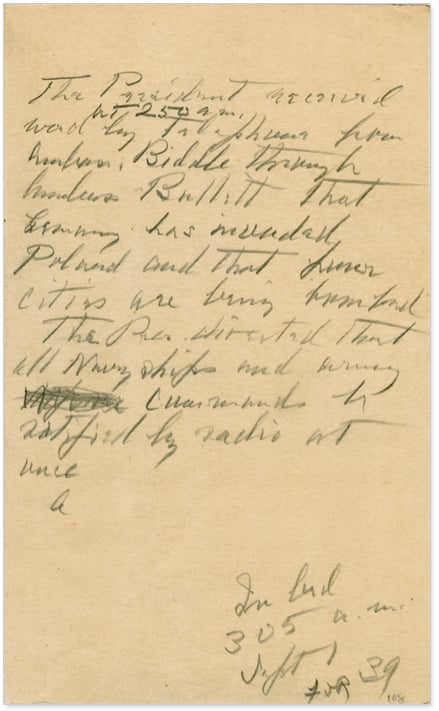 The President received
at 250 a.m.
word by telephone from
Ambas. Biddle through
Ambass Bullitt that
Germany has invaded
Poland and that four
cities are being bombed
The Pres. directed that
all Navy ships and army
commands be
notified by radio at
once
In bed
305 a.m.
Sept 1 39
FDR
108